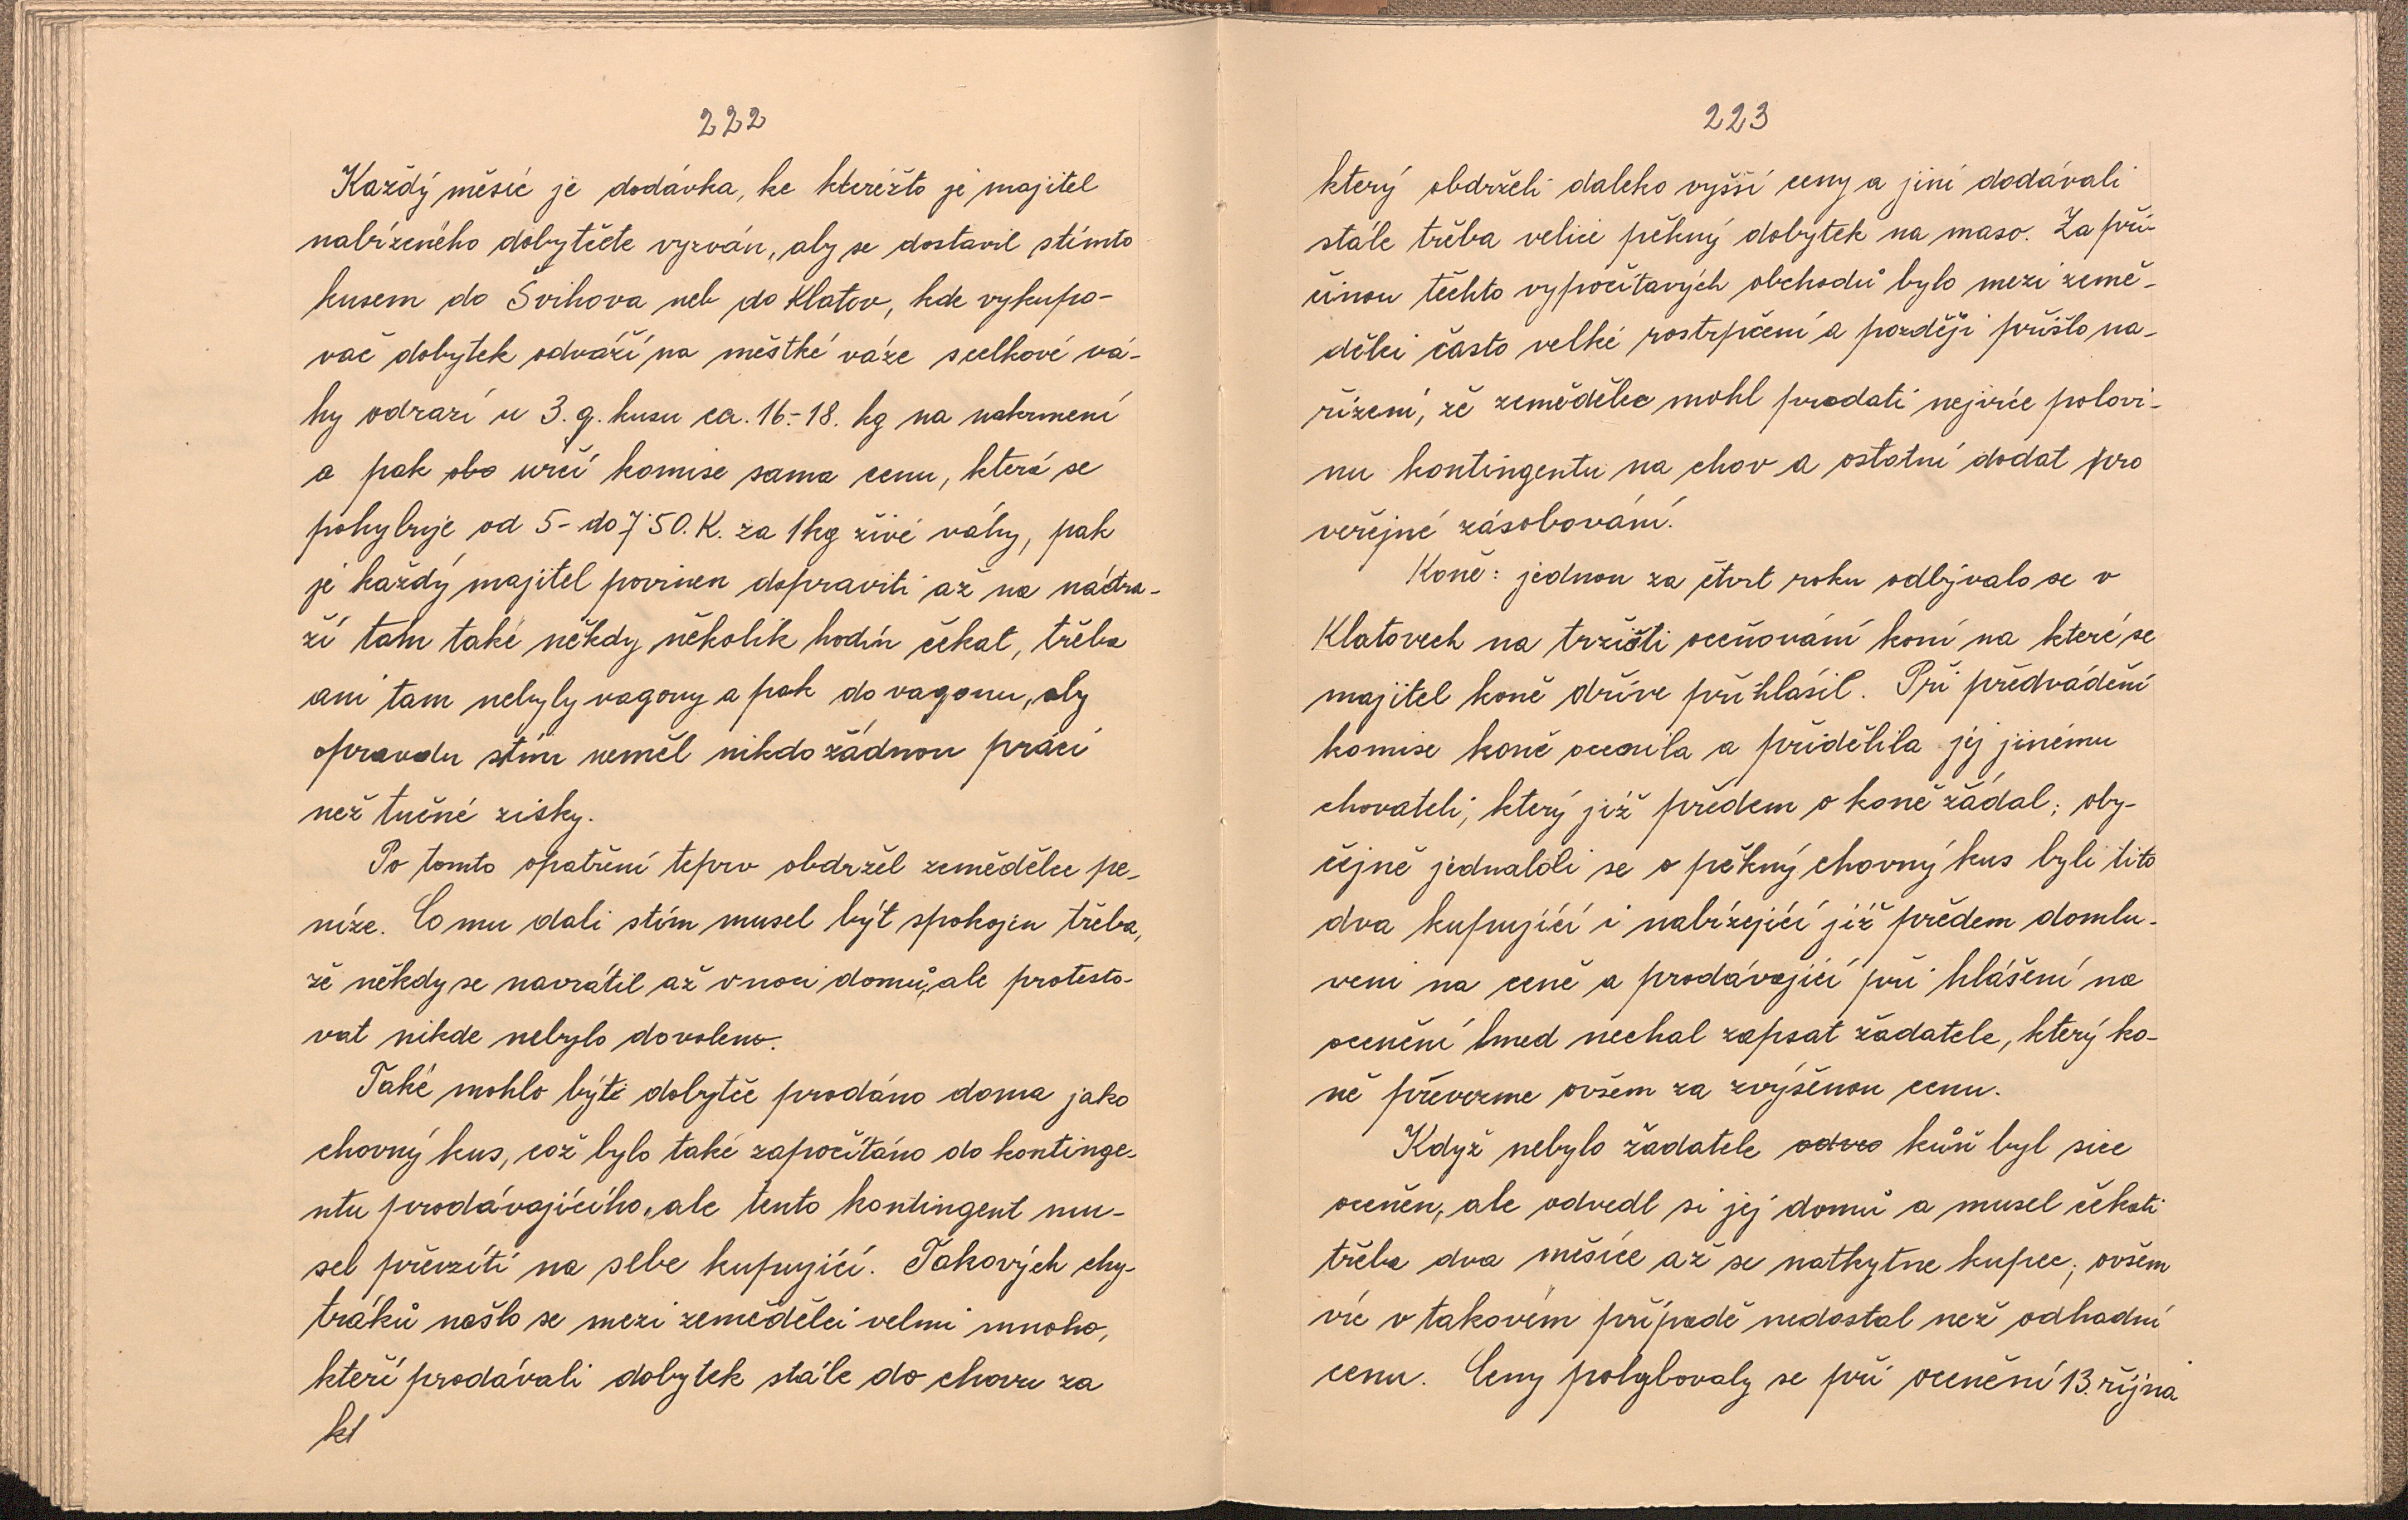 222
Každý měsíc je dodávka, ke kteréžto je majitel
nabízeného dobytčete vyzván, aby se dostavil stímto
kusem do Švihova neb do Klatov, kde vykupo-
vač dobytek odváží na městké váze scelkové vá-
hy odrazí u 3. q. kusu ca. 16.-18. kg na nakrmení
a pak obo určí komise sama cenu, která se
pohybuje od 5- do 7·50. K. za 1kg živé váhy, pak
je každý majitel povinen dopraviti až na nádra-
ží tam také někdy několik hodin čekat, třeba
ani tam nebyly vagony a pak do vagonu, aby
opravdu stím neměl nikdo žádnou práci
než tučné zisky.
Po tomto opatření teprv obdržel zemědělec pe-
níze. Co mu dali stím musel být spokojen třeba,
že někdy se navrátil až v noci domů, ale protesto-
vat nikde nebylo dovoleno.
Také mohlo býti dobytče prodáno doma jako
chovný kus, což bylo také započítáno do kontinge-
ntu prodávajícího, ale tento kontingent mu-
sel převzíti na sebe kupující. Takových chy-
tráků našlo se mezi zemědělci velmi mnoho,
kteří prodávali dobytek stále do chovu za
kt
223
který obdrželi daleko vyšší ceny a jiní dodávali
stále třeba velice pěkný dobytek na maso. Za pří-
činou těchto vypočítavých obchodů bylo mezi země-
dělci často velké rostrpčení a později přišlo na-
řízení, že zemědělec mohl prodati nejvíce polovi-
nu kontingentu na chov a ostatní dodat pro
veřejné zásobování.
Koně: jednou za čtvrt roku odbývalo se v
Klatovech na tržišti oceňování koní na které se
majitel koně dříve přihlásil. Při předvádění
komise koně ocenila a přidělila jej jinému
chovateli, který již předem o koně žádal; oby-
čejně jednaloli se o pěkný chovný kus byli tito
dva kupující i nabízející již předem domlu-
veni na ceně a prodávající při hlášení na
ocenění hned nechal zapsat žadatele, který ko-
ně převezme ovšem za zvýšenou cenu.
Když nebylo žadatele odveo kůň byl sice
oceněn, ale odvedl si jej domů a musel čekati
třeba dva měsíce až se nathytne kupec; ovšem
víc v takovém případě nedostal než odhadní
cenu. Ceny pohybovaly se při ocenění 13. října